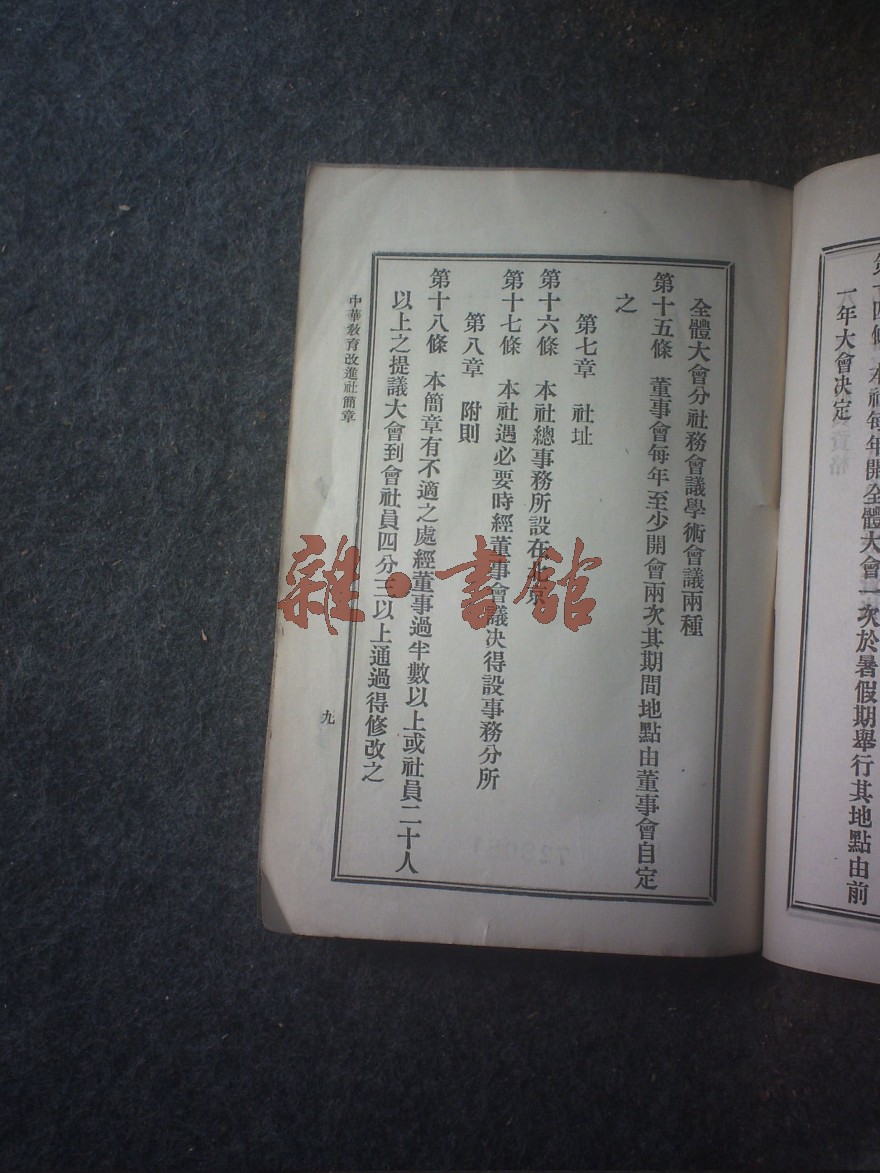 第十四條　本社每年開全體大會一次於暑假期舉行其地點由前
一年大會决定
全體大會分社務會議學術會議兩種
第十五條　董事會每年至少開會兩次其期間地點由董事會自定
之
第七章　社址
第十六條　本社總事務所設在北京
第十七條　本社遇必要時經董事會議决得設事務分所
第八章　附則
第十八條　本簡章有不適之處經董事過半數以上或社員二十人
以上之提議大會到會社員四分三以上通過得修改之
中華教育改進社簡章
九
雜·書館